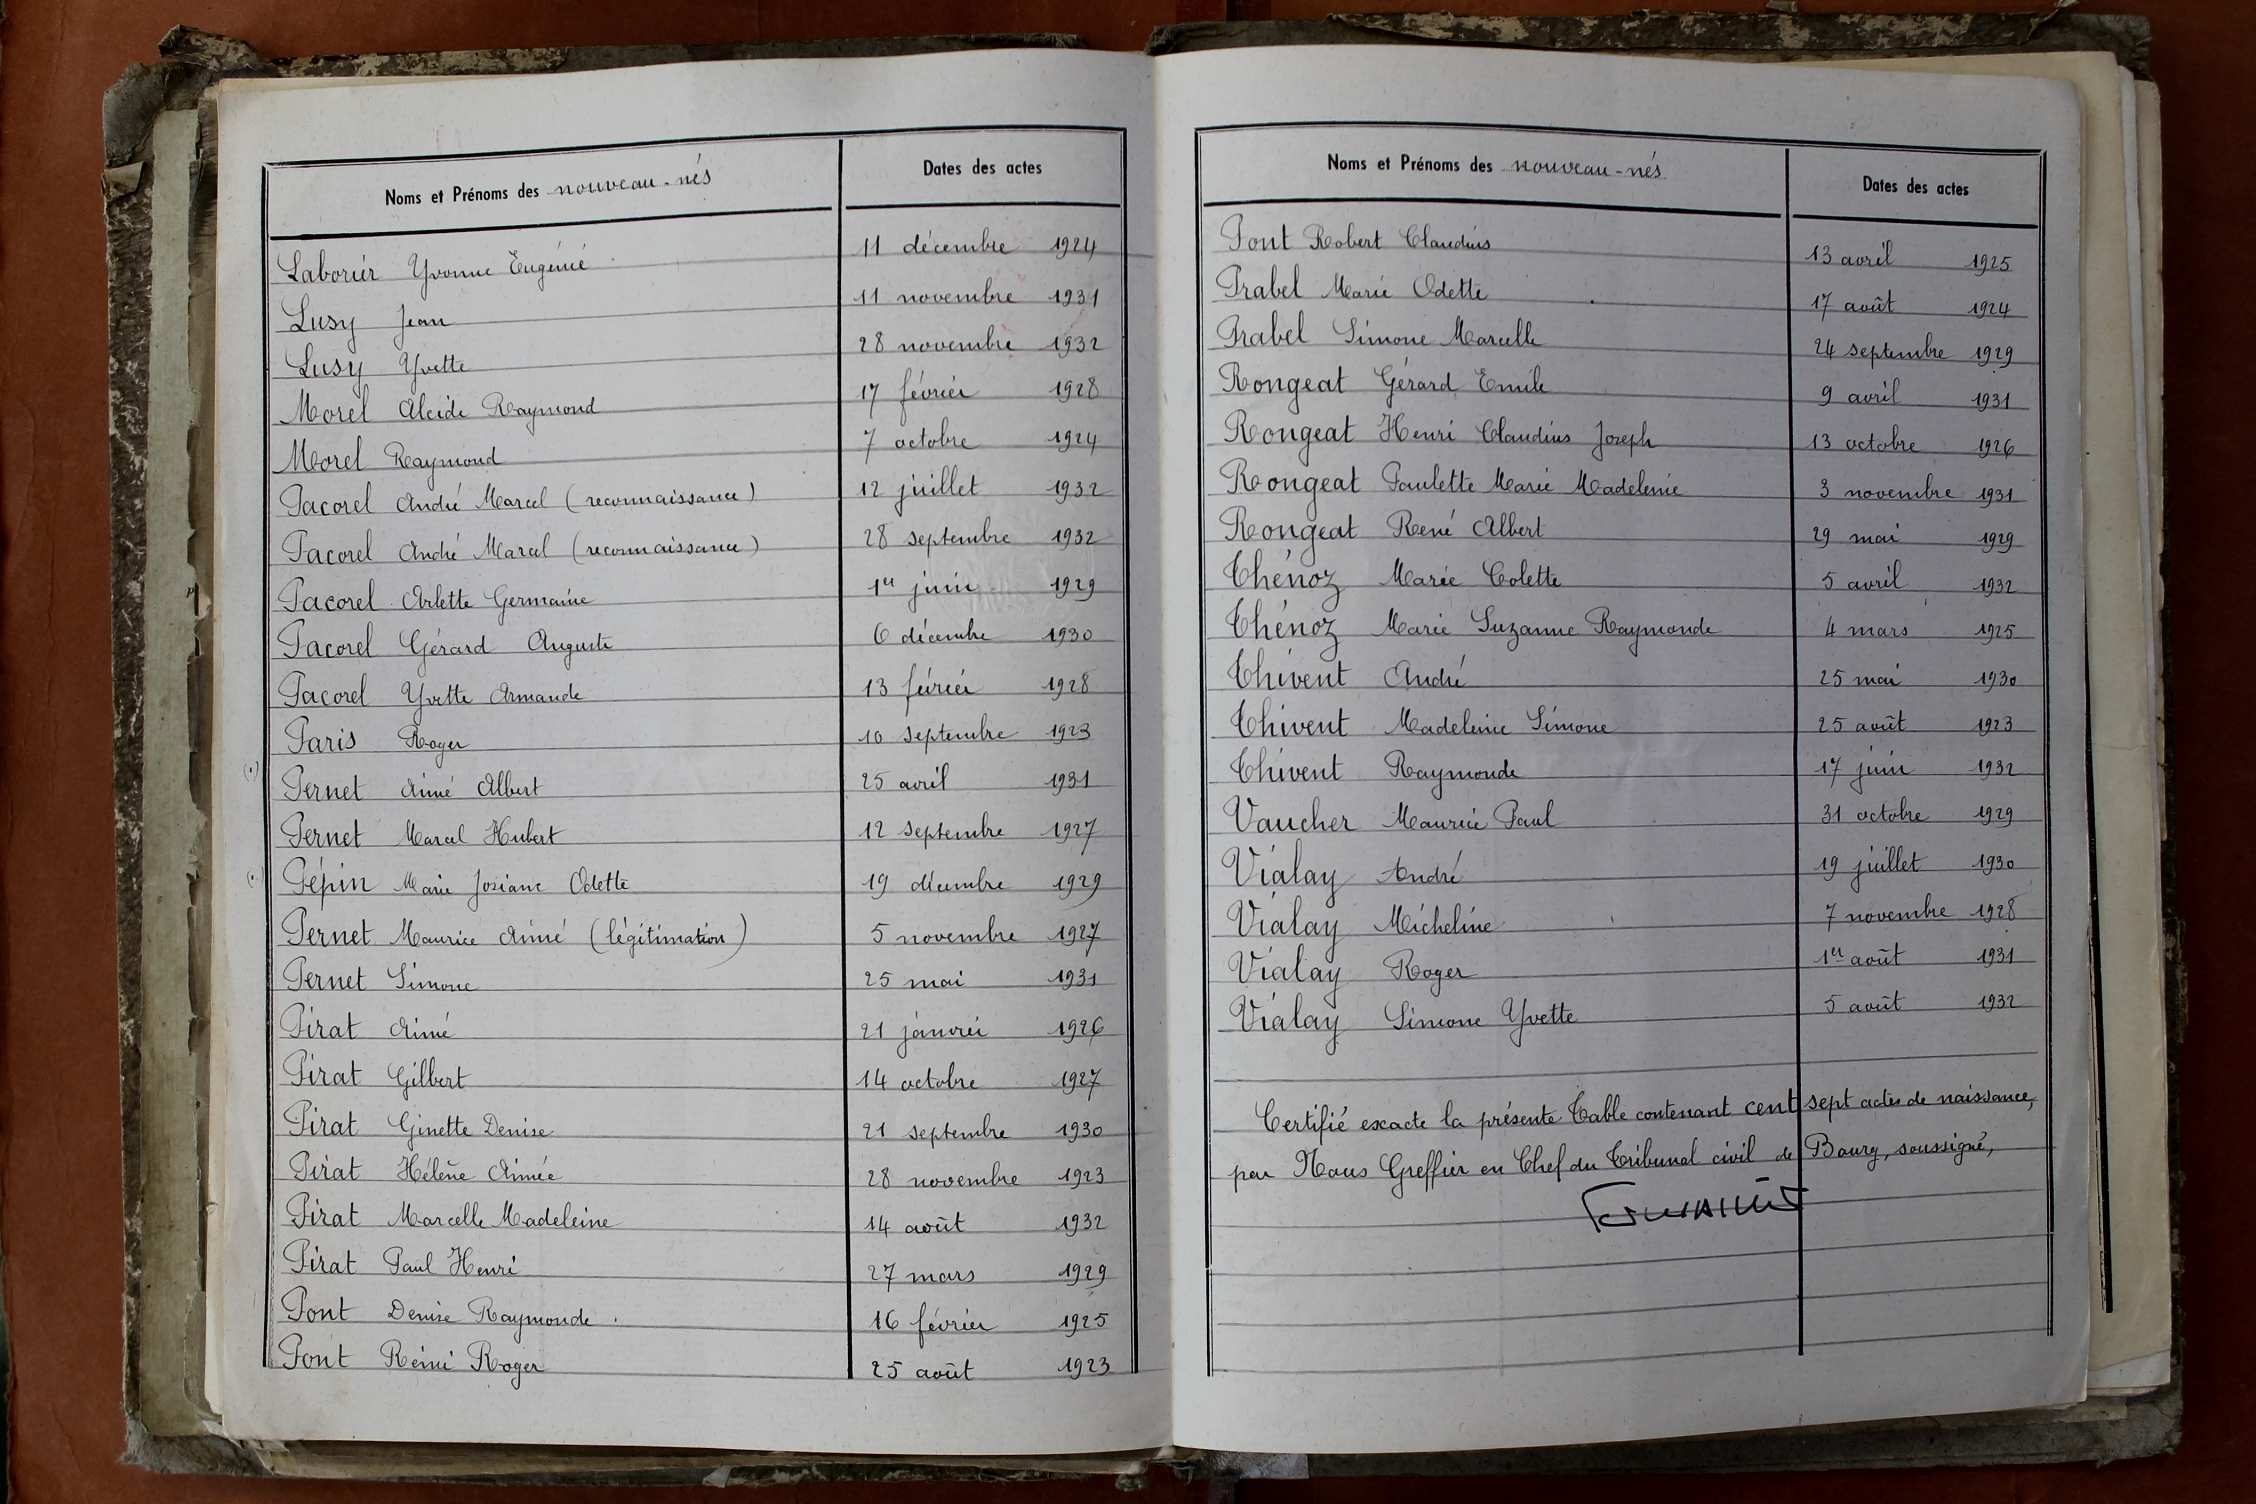 Noms et Prénoms des nouveau-nés Dates des actes
Laborier Yvonne Eugénie 11 décembre 1924
Lusy Jean 11 novembre 1931
Lusy Yvette 28 novembre 1932
Morel Alcide Raymond 17 février 1928
Morel Raymond 7 octobre 1924
Pacorel André Marcel (reconnaissance) 12 juillet 1932
Pacorel André Marcel (reconnaissance) 28 septembre 1932
Pacorel Arlette Germaine 1er juin 1929
Pacorel Gérard Auguste 6 décembre 1930
Pacorel Yvette Armande 13 février 1928
Paris Roger 10 septembre 1923
Pernet Aimé Albert 25 avril 1931
Pernet Marcel Hubert 12 septembre 1927
Pépin Marie Josiane Odette 19 décembre 1929
Pernet Maurice Aimé (légitimation) 5 novembre 1927
Pernet Simone 25 mai 1931
Pirat Aimé 21 janvier 1926
Pirat Gilbert 14 octobre 1927
Pirat Ginette Denise 21 septembre 1930
Pirat Hélène Aimée 28 novembre 1923
Pirat Marcelle Madeleine 14 août 1932
Pirat Paul Henri 27 mars 1929
Pont Denise Raymonde 16 février 1925
Pont Rémi Roger 25 août 1923
Noms et Prénoms des nouveau-nés Dates des actes
Pont Robert Claudius 13 avril 1925
Prabel Marie Odette 17 août 1924
Prabel Simone Marcelle 24 septembre 1929
Rongeat Gérard Emile 9 avril 1931
Rongeat Henri Claudius Joseph 13 octobre 1926
Rongeat Paulette Marie Madeleine 3 novembre 1931
Rongeat René Albert 29 mai 1929
Thénoz Marie Colette 5 avril 1932
Thénoz Marie Suzanne Raymonde 4 mars 1925
Thivent André 25 mai 1930
Thivent Madeleine Simone 25 août 1923
Thivent Raymonde 17 juin 1932
Vaucher Maurice Paul 31 octobre 1929
Vialay André 19 juillet 1930
Vialay Micheline 7 novembre 1928
Vialay Roger 1er août 1931
Vialay Simone Yvette 5 août 1932
Certifié exacte la présente Table contenant cent sept actes de naissance,
par Nous Greffier en Chef du Tribunal civil de Bourg, soussigné,